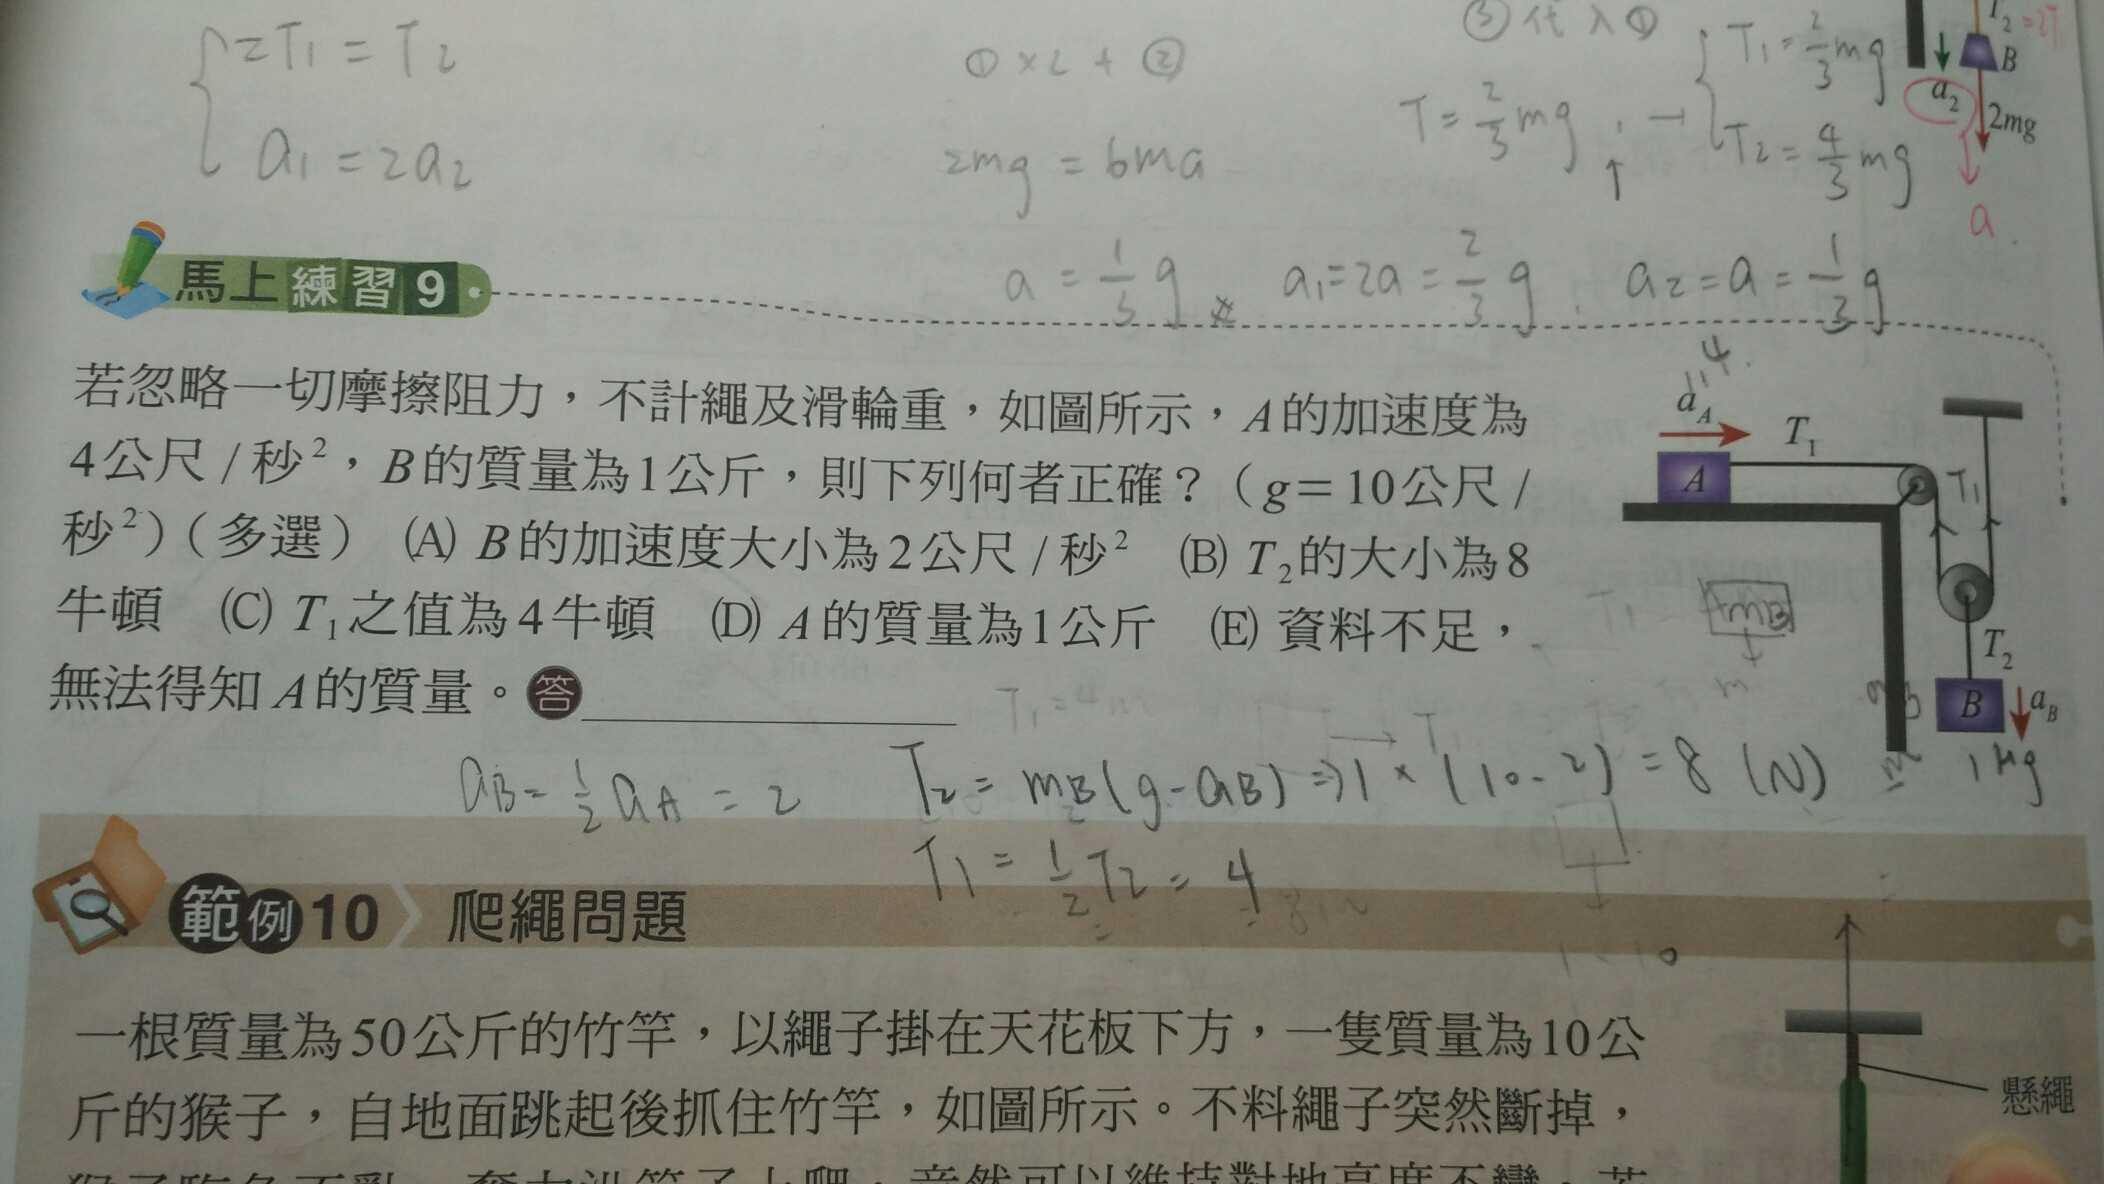 2T₁ = T₂
a₁ = 2a₂
① × 2 + ②
2mg = 6ma
③ 代入 ①
T = 2/3 mg → T₁ = 2/3 mg
T₂ = 4/3 mg
T₂ = 2T₁
B
a₂
2mg
a
a = 1/3 g a₁ = 2a = 2/3 g , a₂ = a = 1/3 g
馬上練習9
若忽略一切摩擦阻力，不計繩及滑輪重，如圖所示，A的加速度為
4公尺/秒²，B的質量為1公斤，則下列何者正確？（g＝10公尺/
秒²）（多選） (A) B的加速度大小為2公尺/秒² (B) T₂的大小為8
牛頓 (C) T₁之值為4牛頓 (D) A的質量為1公斤 (E) 資料不足，
無法得知A的質量。答
4
aA
T₁
A
T₁
T₂
B
aB
1kg
mB
T₁ = 4m
aB = 1/2 aA = 2
T₂ = mB(g - aB) ⇒ 1 × (10 - 2) = 8 (N)
T₁ = 1/2 T₂ = 4
範例10 爬繩問題
一根質量為50公斤的竹竿，以繩子掛在天花板下方，一隻質量為10公
斤的猴子，自地面跳起後抓住竹竿，如圖所示。不料繩子突然斷掉，
懸繩